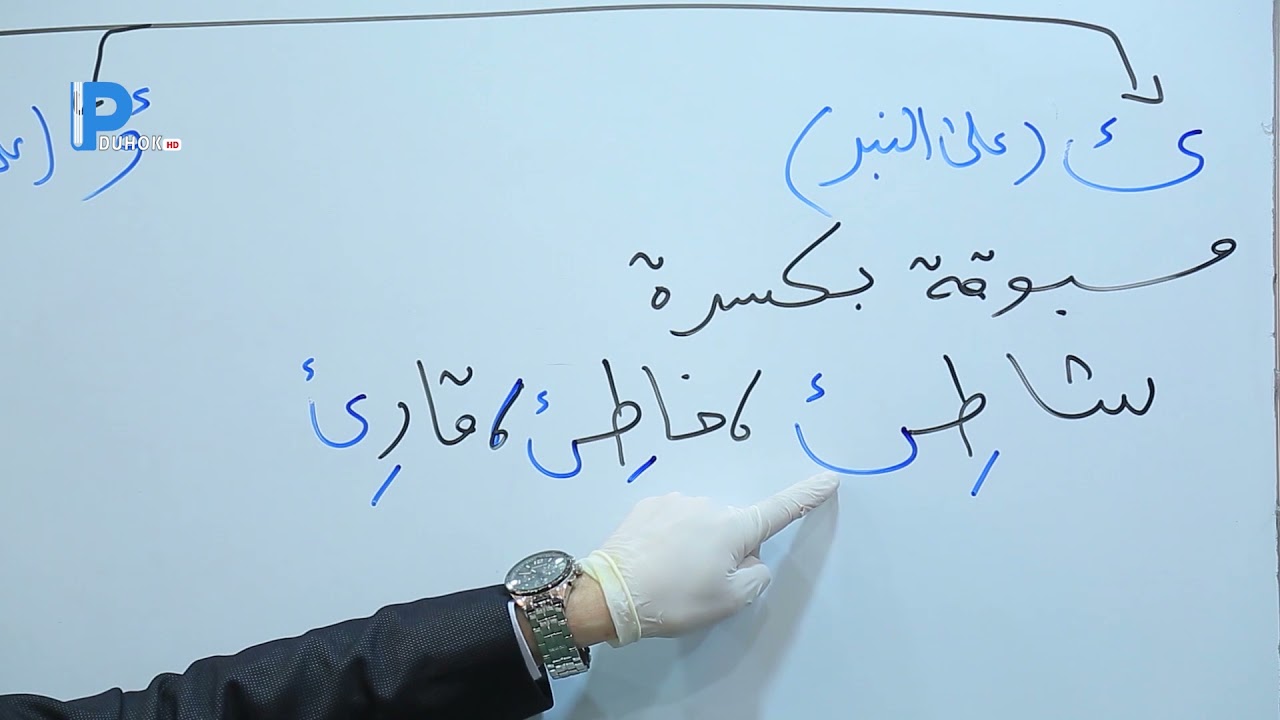 ئ (على النبر) ؤ (عل
مسبوقة بكسرة
شاطِئ، خاطِئ، قارِئ
P DUHOK HD